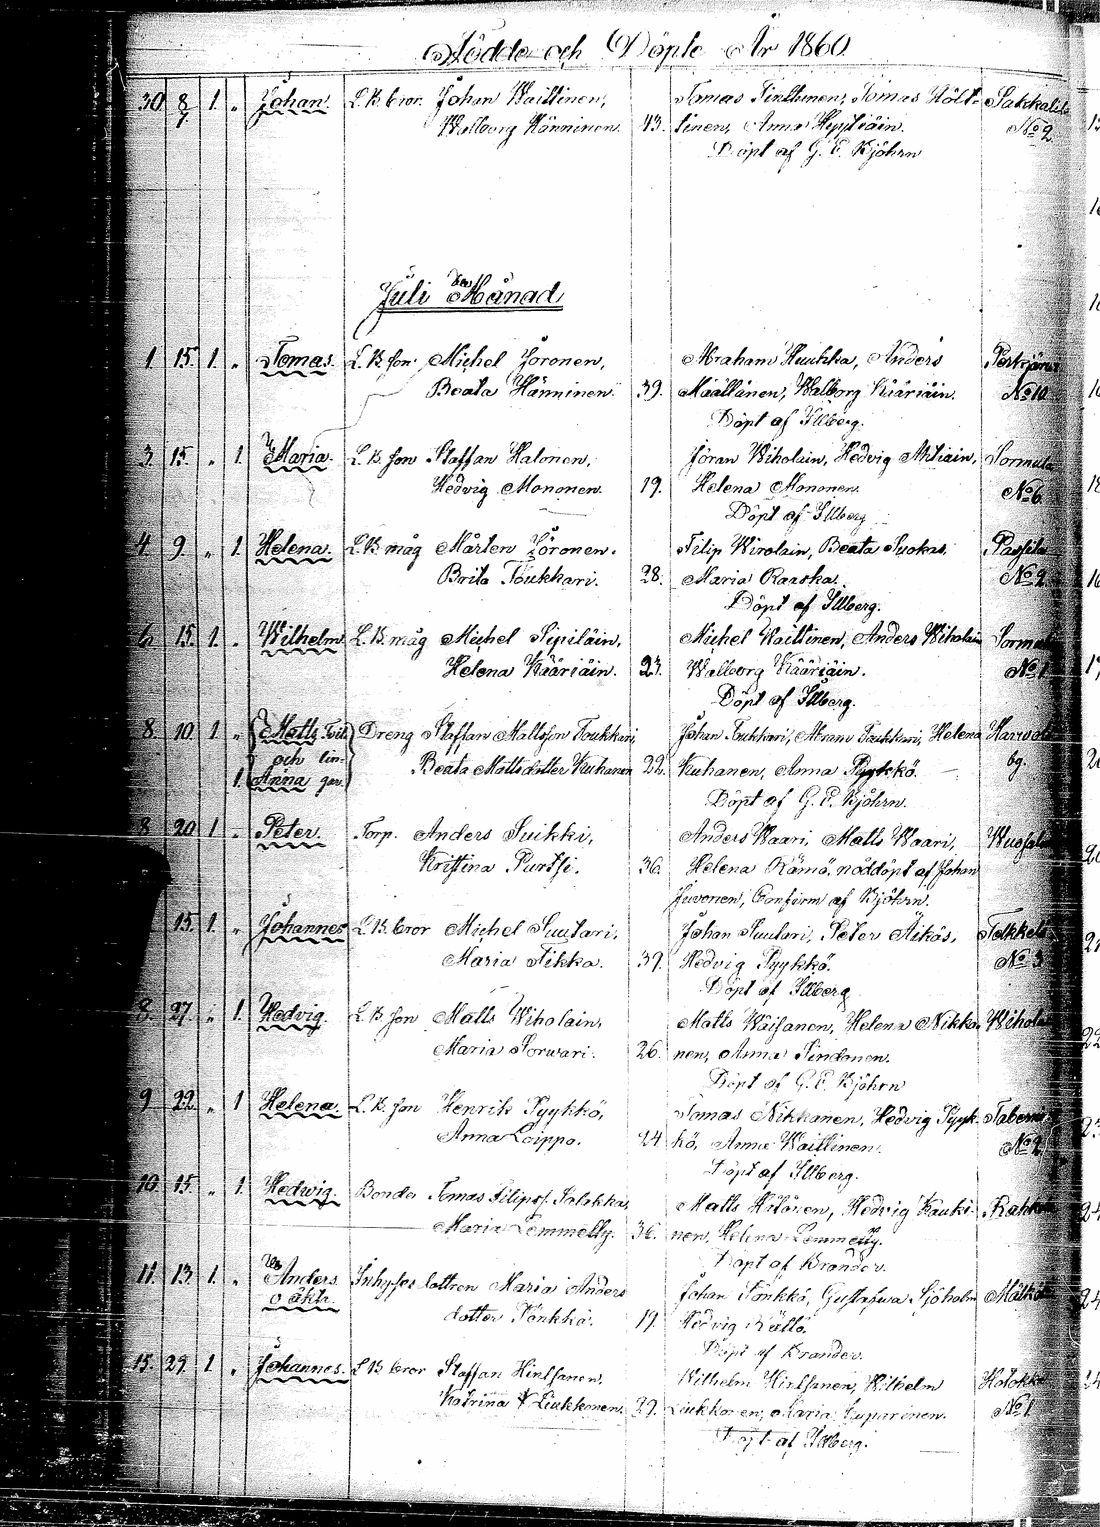 Födde och Döpte År 1860.
30 8/7 1. „ Johan. L. B. bror. Johan Waittinen, Tomas Tinttunen, Tomas Hölt- Sakkalis
Walborg Hänninen. 43. tinen, Anna Hyytiäin. No 2.
Döpt af G. E. Björhn
Juli Månad
1 15. 1. „ Tomas. L. B. son Michel Joronen, Abraham Huukka, Anders Perkjärvi
Beata Hänninen. 39. Määttänen, Walborg Kääriäin. No 10
Döpt af Illberg.
3. 15. „ 1. Maria. L. B. son Staffan Halonen, Jöran Wiholain, Hedvig Ahtiain, Sormula
Hedvig Mononen. 19. Helena Mononen. No 6
Döpt af Illberg
4. 9. „ 1. Helena. L. B. måg Mårten Joronen. Filip Wirolain, Beata Suokas. Passila
Brita Toukkari. 28. Maria Raaska. No 2
Döpt af Illberg.
6 15. 1. „ Wilhelm L. B. måg Michel Sipiläin, Michel Waittinen, Anders Wiholain Sormula
Helena Kääriäin. 23. Walborg Kääriäin. No 1
Döpt af Illberg.
8. 10. 1. „ Matts Dreng Staffan Mattsson Toukkari, Johan Toukkari, Abram Toukkari, Helena
och
1. Anna Beata Mattsdotter Kuhanen 22. Kuhanen, Anna Pyykkö. bg.
Döpt af G. E. Björhn.
8 20 1. „ Peter. Torp. Anders Suikki, Anders Waari, Matts Waari,
Kristina Purtsi. 36. Helena Rämö. nöddöpt af Johan
Juvonen, Confirm af Björhn.
15. 1. „ Johannes L. B. bror Michel Suutari, Johan Suutari, Peter Äikäs, Telkkälä
Maria Tikka. 37. Hedvig Pyykkö. No 3
Döpt af Illberg
8. 27. „ 1. Hedvig. L. B. son Matts Wiholain, Matts Wäisänen, Helena Nikka- Wihola
Maria Sorwari. 26. nen, Anna Tindonen.
Döpt af G. E. Björhn
9 22. „ 1 Helena. L. B. son Henrik Pyykkö, Tomas Nikkanen, Hedvig Pyyk-
Anna Loippo. 24 kö, Anna Waittinen. No 2
Döpt af Illberg.
10. 15. „ 1. Hedwig. Bonde Tomas Filipsf. Matts Hilonen, Hedvig Kauki-
Maria Lemmetty. 36. nen, Helena Lemmetty.
Döpt af Brander.
11. 13. 1. „ Anders Inhyses dottren Maria Anders Johan Pönkkö, Gustafwa Sjöholm
o äkta. dotter Pönkkö. 19. Hedvig Rättö.
Döpt af Brander.
15. 29. 1. „ Johannes. L. B. bror Staffan Hintsanen. Wilhelm Hintsanen, Wilhelm Hatakka
Katrina Liukkonen. 29. Liukkonen, Maria Suparinen. No 1
Döpt af Illberg.